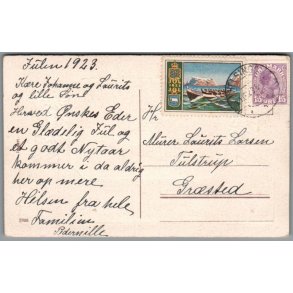 Julen 1923.
Kære Johannes og Laurits
og lille Poul
Herved Ønskes Eder
en Glædelig Jul og
et godt Nytaar
kommer i da aldrig
her op mere
Hilsen fra hele
Familien
Pernille
Hr
Murer Laurits Larsen
Tulstrup
Græsted
15
15